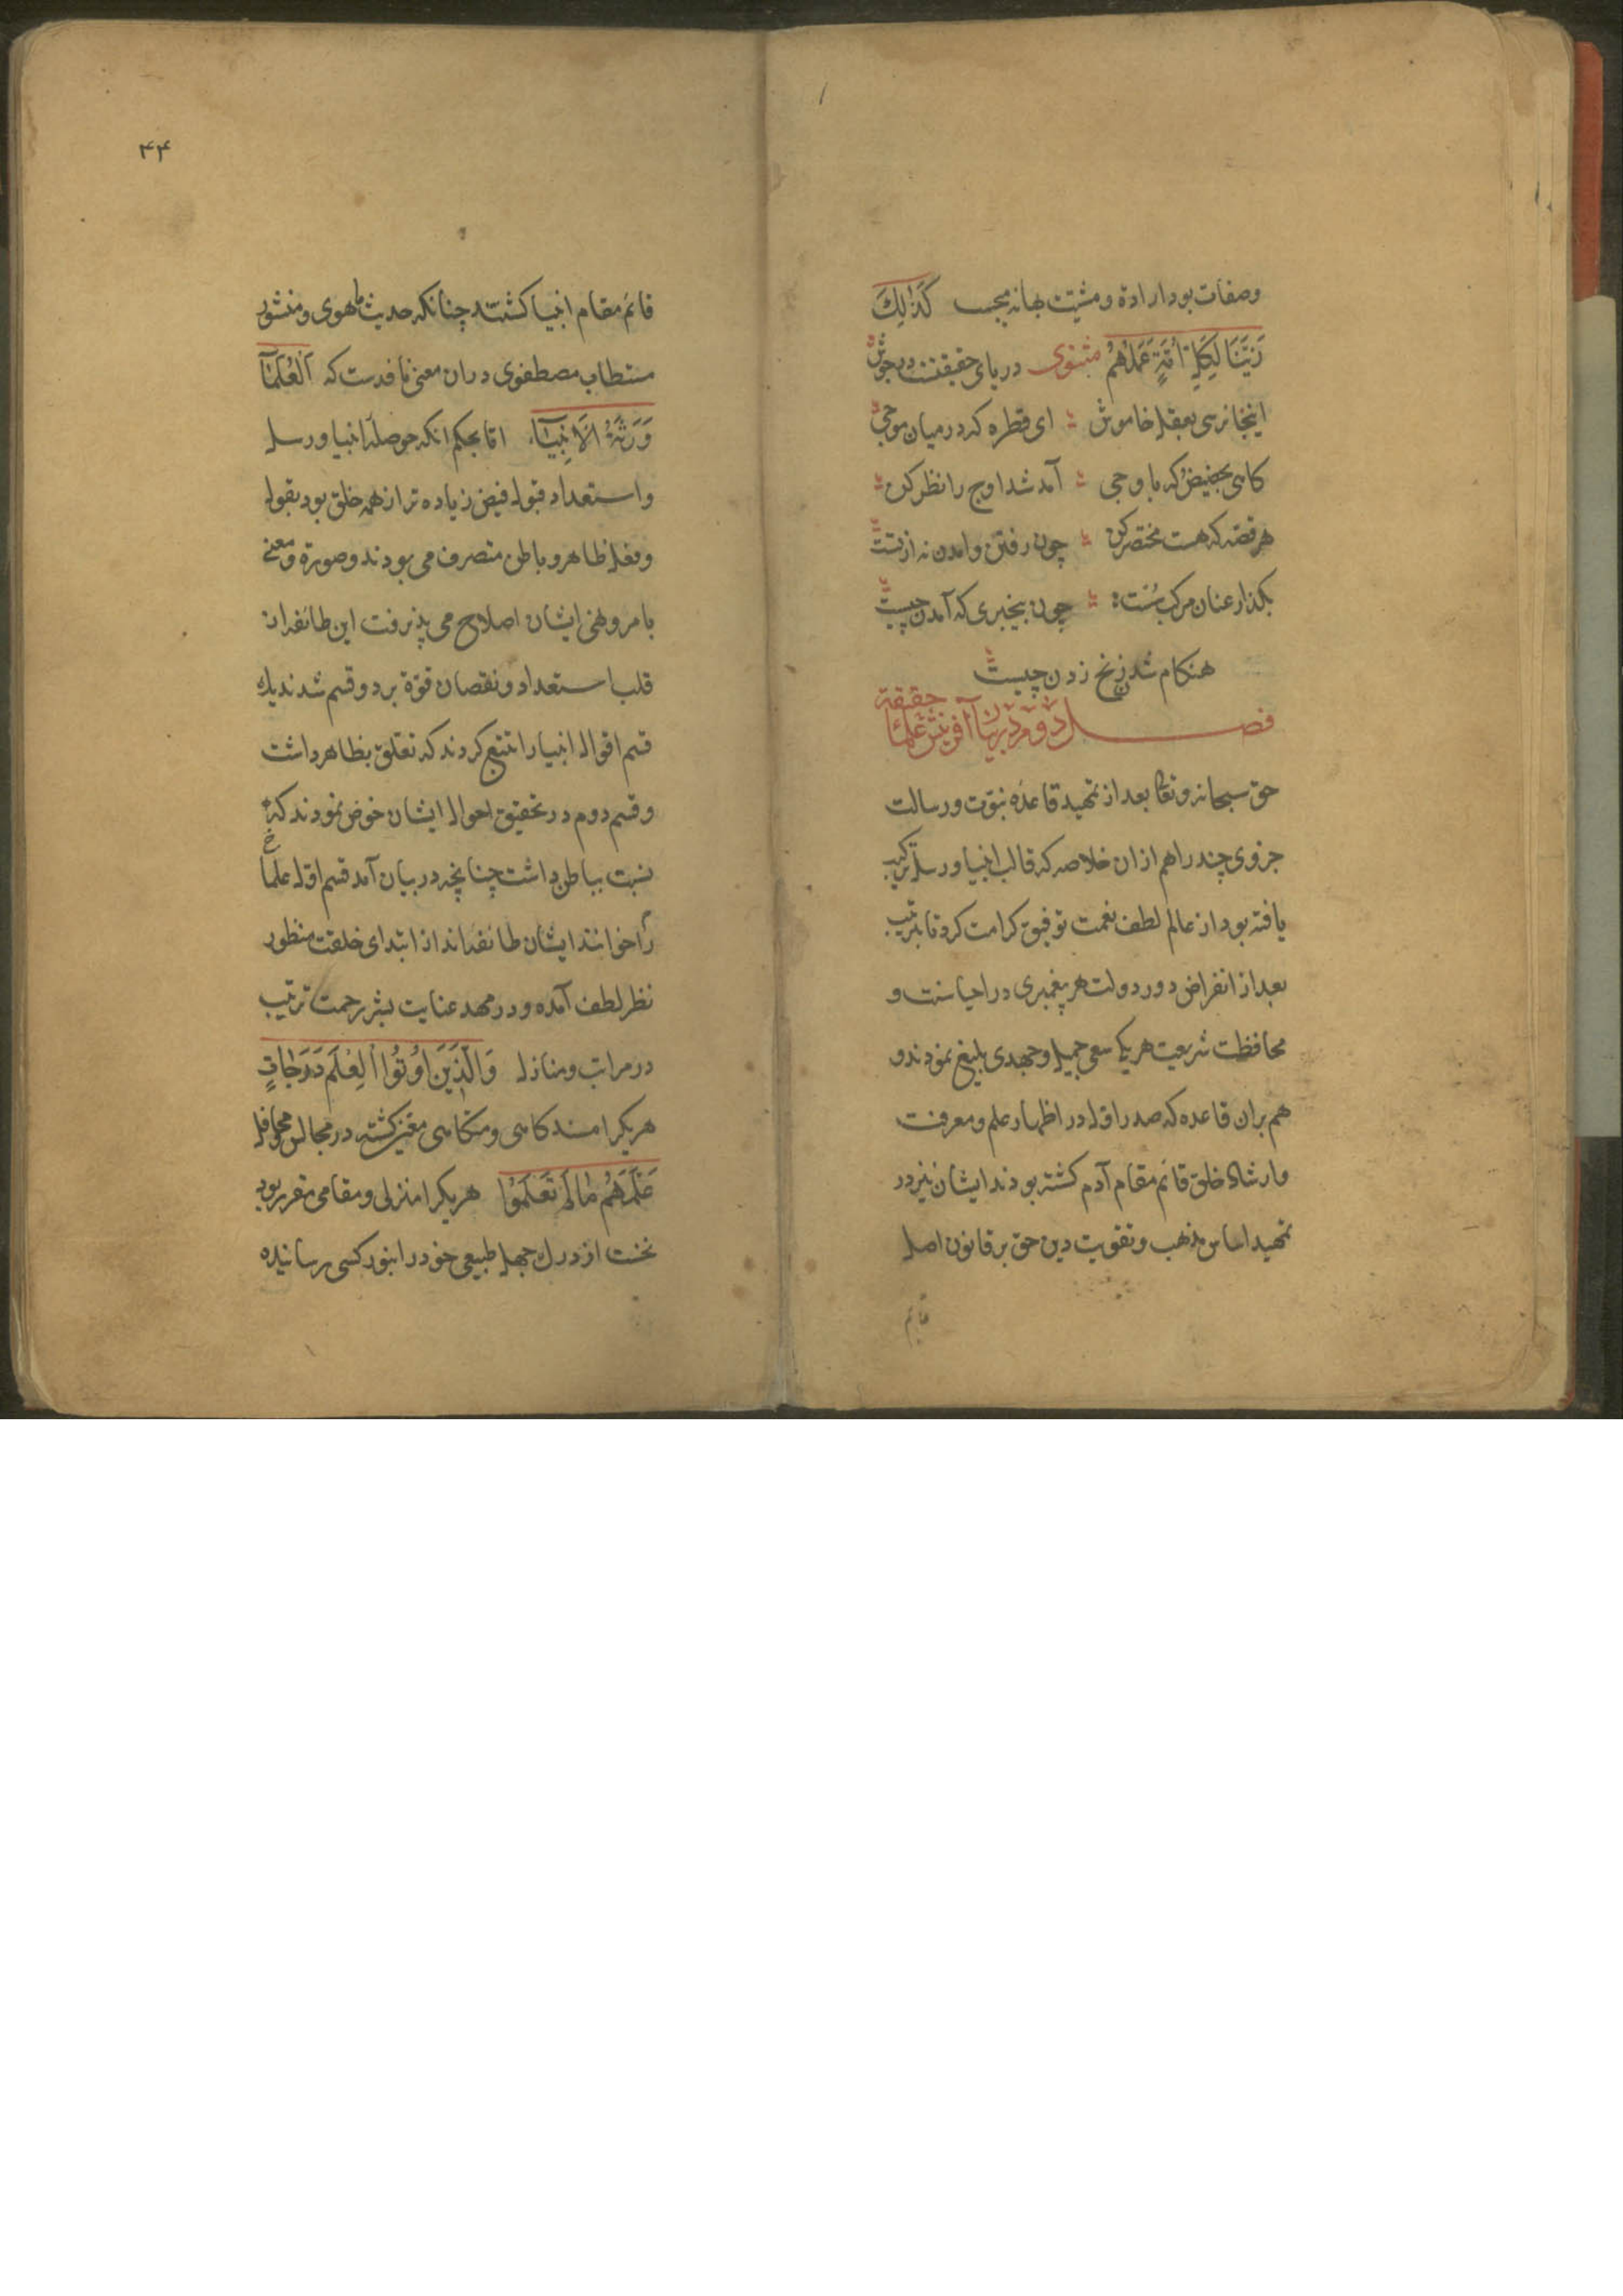 وصفات بود ارادة ومشیت بهانه بحسب كَذٰلِكَ
زَيَّنَّا لِكُلِّ أُمَّةٍ عَمَلَهُمْ مثنوی دریای حقیقتست در جوش
اینجا نرسی بعقل خاموش ای قطره که در میان موجی
کاهی بحضیض که باوجی آمد شد اوج را نظر کن
هر قصه که هست مختصر کن چون رفتن وامدن نه از تست
بکذار عنان مرکب سست چون بیخبری که آمدن چیست
هنکام شدن زنخ زدن چیست
فصل دوم در بیان آفرینش علماء حقیقة
حق سبحانه وتعالی بعد از تمهید قاعدهٔ نبوّت ورسالت
جزوی چند را هم ازان خلاصه که قالب انبیا ورسل ترکیب
یافته بود از عالم لطف نعمت توفیق کرامت کرد تا بترتیب
بعد از انقراض دور دولت هر پیغمبری در احیا سنت و
محافظت شریعت هریک سعی جمیل وجهدی بلیغ نمودند و
هم بران قاعده که صدر اول در اظهار علم ومعرفت
وارشاد خلق قائم مقام آدم کشته بودند ایشان نیز در
تمهید اساس مذهب وتقویت دین حق بر قانون اصل
قایم
۴۴
قائم مقام انبیا کشتند چنانکه حدیث نبوی ومنشور
مستطاب مصطفوی دران معنی نافدست که اَلْعُلَمَآءُ
وَرَثَةُ الْاَنْبِيَآءِ امّا بحکم انکه حوصلهٔ انبیا ورسل
واستعداد قبول فیض زیاده تر از همه خلق بود بقول
وفعل ظاهر وباطن متصرف می بودند وصورة ومعنی
بامر ونهی ایشان اصلاح می پذیرفت این طائفه از
قلب استعداد ونقصان قوّة بر دو قسم شدند یك
قسم اقوال انبیا را تتبع کردند که تعلق بظاهر داشت
وقسم دوم در تحقیق احوال ایشان خوض نمودند که
نسبت بباطن داشت چنانچه در بیان آمد قسم اول علما
را خوانند ایشان طائفه‌اند از ابتدای خلقت منظور
نظر لطف آمده ودر مهد عنایت بشیر رحمت ترتیب
در مراتب ومنازل وَالَّذِينَ اُوتُوا الْعِلْمَ دَرَجَاتٍ
هریکرا مسندکاهی ومتکاهی معیّن کشته در مجالس محافل
عَلَّمَهُمْ مَا لَمْ تَعْلَمُوا هریکرا منزلی ومقامی مقرر بود
نخست از درك جهل طبیعی خود را بنور کسی رسانیده